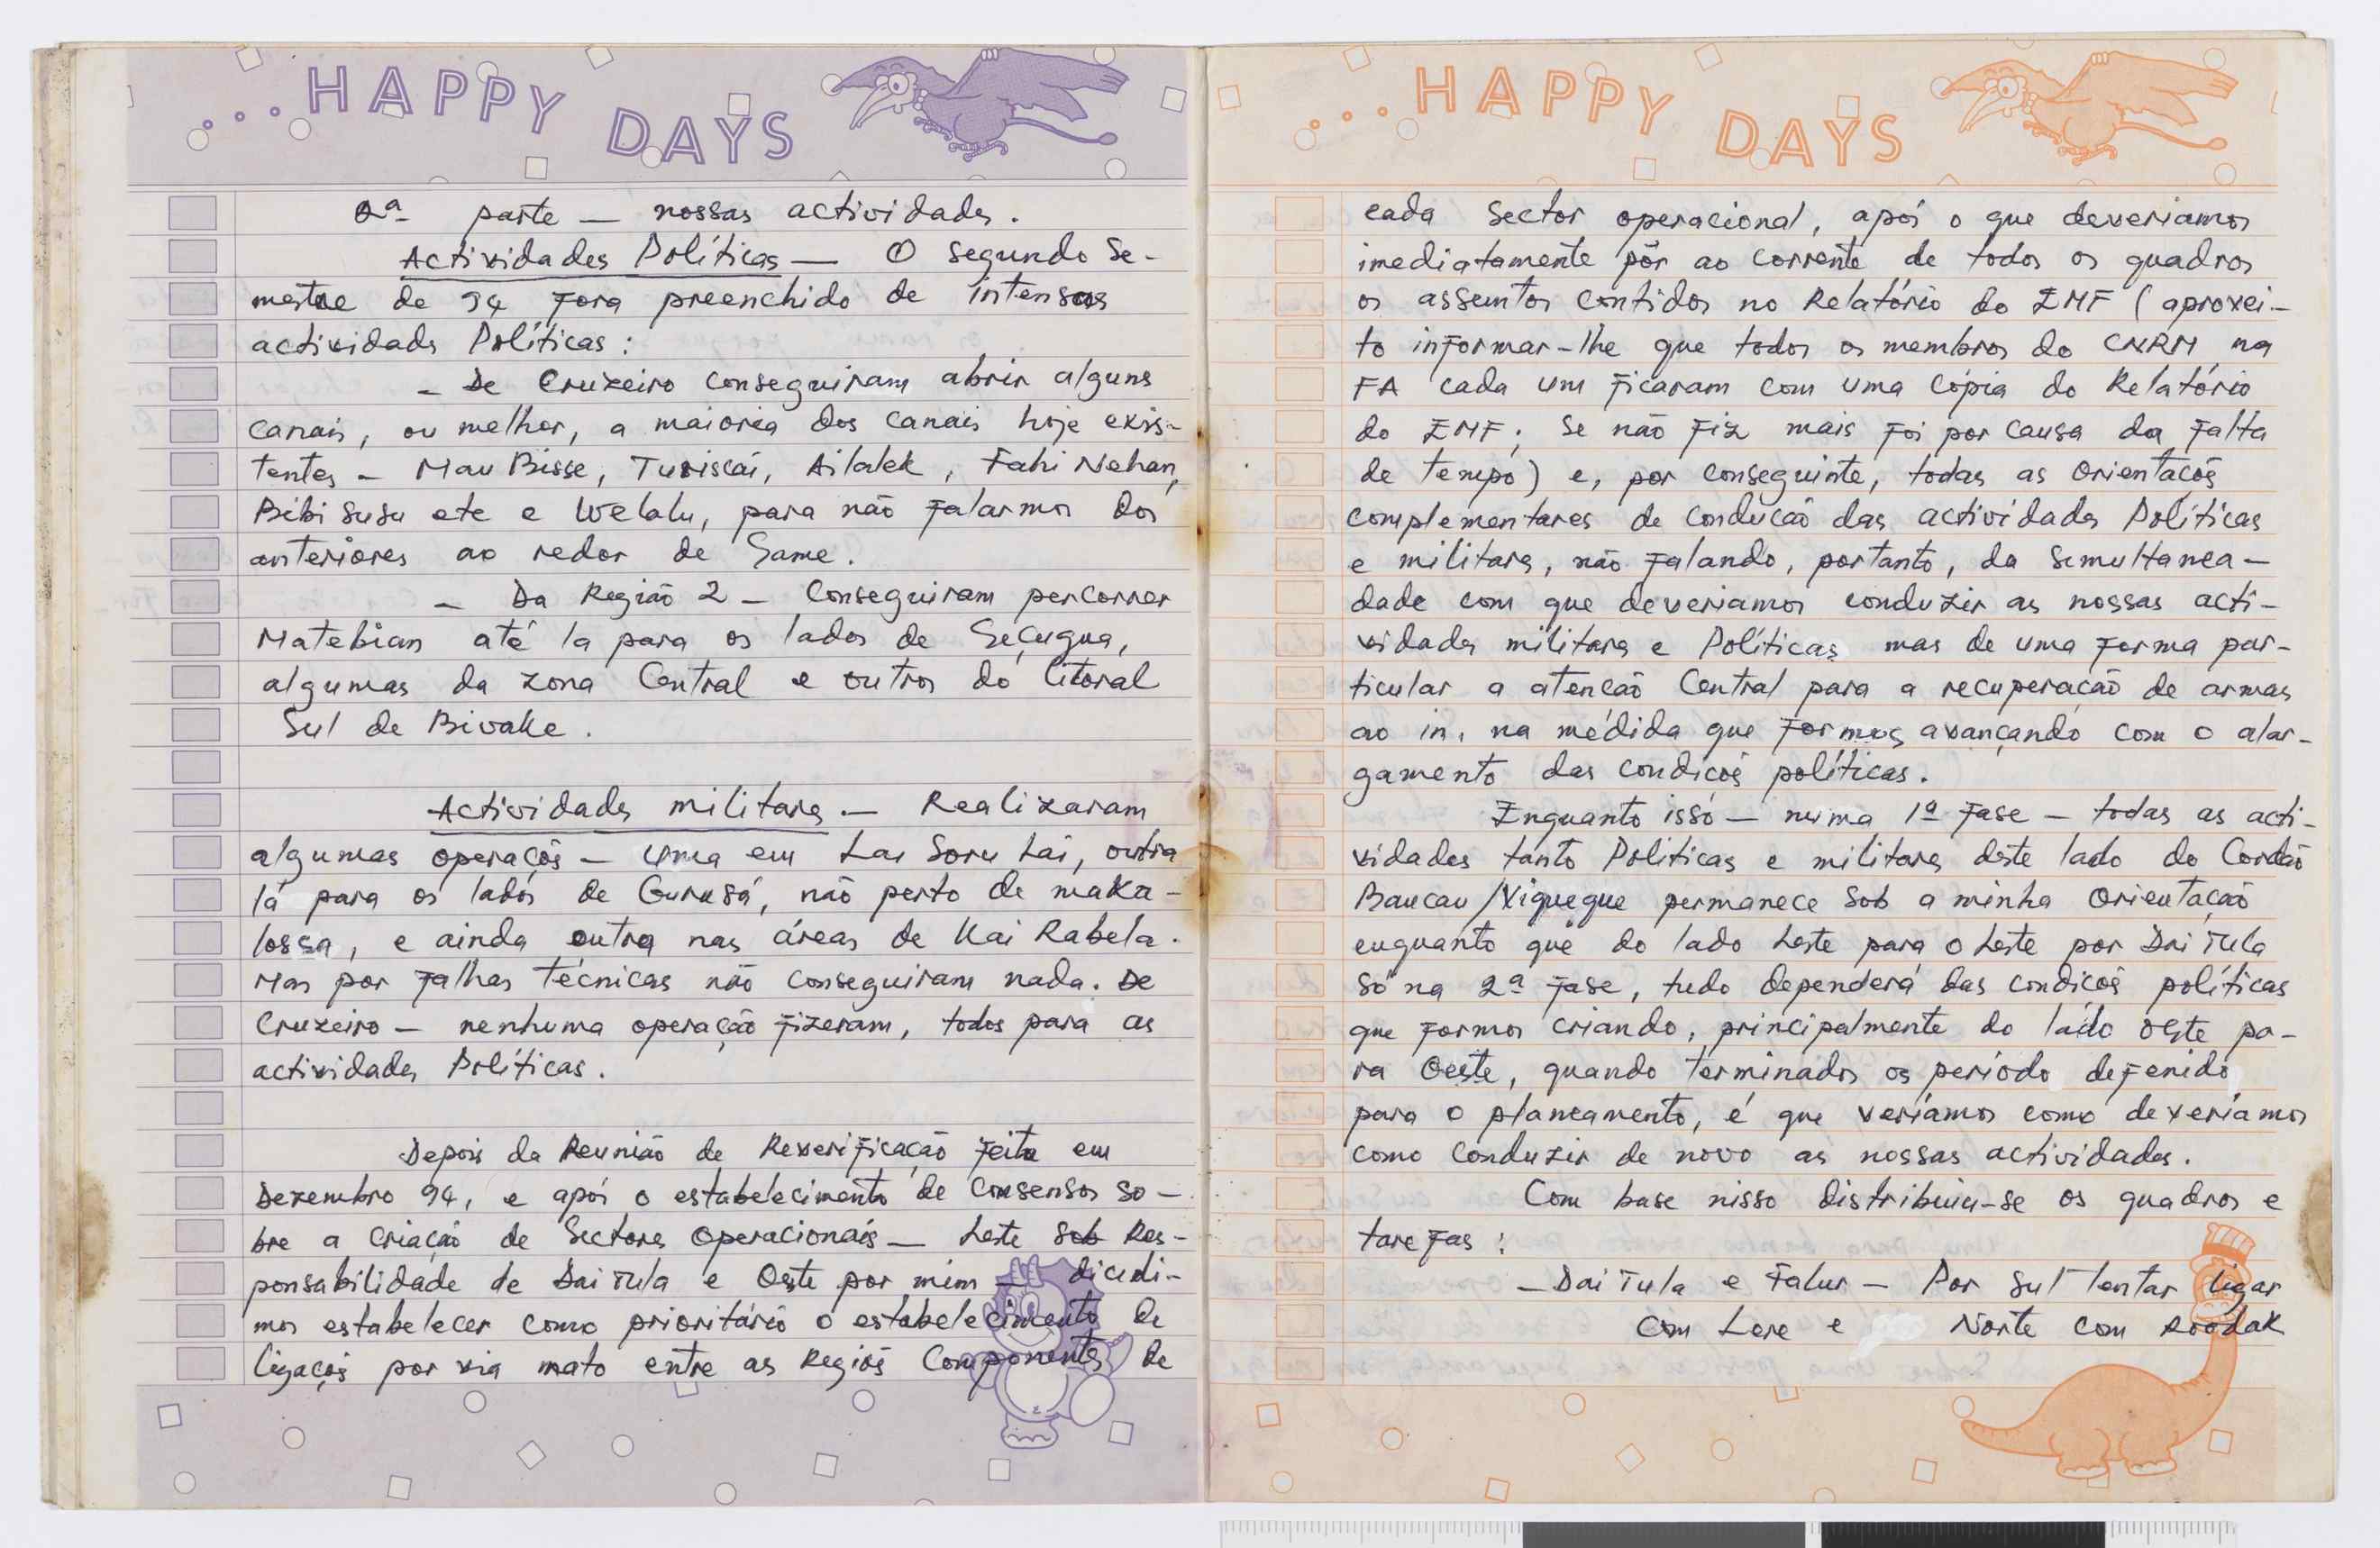 ...HAPPY DAYS
2ª parte — nossas actividades.
Actividades Políticas — O segundo Se-
mestre de 94 fora preenchido de intensas
actividades Políticas:
- De Cruzeiro conseguiram abrir alguns
canais, ou melhor, a maioria dos canais hoje exis-
tentes - Mau Bisse, Turiscai, Ailalek, Fahi Nehan,
Bibi Susu etc e Welalu, para não falarmos dos
anteriores ao redor de Same.
- Da Região 2 - Conseguiram percorrer
Matebian até la para os lados de Seçugua,
algumas da zona Central e outros do litoral
Sul de Bivake.
Actividades militares. — Realizaram
algumas operações - uma em Lai Soru Lai, outra
lá para os lados de Gurusá, não perto de maka-
lossa, e ainda outra nas áreas de Kai Rabela.
Mas por falhas técnicas não conseguiram nada. De
Cruzeiro - nenhuma operação fizeram, todos para as
actividades Políticas.
Depois da Reunião de Reverificação feita em
Dezembro 94, e após o estabelecimento de Consensos so-
bre a criação de Sectores Operacionais — Leste sob Res-
ponsabilidade de Dai Tula e Oeste por mim — dicidi-
mos estabelecer como prioritário o estabelecimento de
ligações por via mato entre as Regiões Componentes de
...HAPPY DAYS
cada Sector operacional, após o que deveriamos
imediatamente pôr ao corrente de todos os quadros
os assuntos contidos no Relatório do EMF (aprovei-
to informar-lhe que todos os membros do CNRM na
FA cada um ficaram com uma cópia do Relatório
do EMF; Se não fiz mais foi por causa da falta
de tempo) e, por conseguinte, todas as Orientações
complementares de condução das actividades Políticas
e militares, não falando, portanto, da Simultanea-
dade com que deveriamos conduzir as nossas acti-
vidades militares e Políticas mas de uma forma par-
ticular a atenção Central para a recuperação de armas
ao in. na médida que formos avançando com o alar-
gamento das condições políticas.
Enquanto isso - numa 1ª fase - todas as acti-
vidades tanto Politicas e militares deste lado do Cordão
Baucau/Viqueque permanece Sob a minha Orientação
enquanto que do lado Leste para o Leste por Dai Tula
Só na 2ª fase, tudo dependerá das condições políticas
que formos criando, principalmente do lado oeste pa-
ra Oeste, quando terminados os período defenido
para o planeamento, é que veríamos como deveríamos
como Conduzir de novo as nossas actividades.
Com base nisso distribuiu-se os quadros e
tarefas:
- Dai Tula e Falur - Por Sul tentar ligar
Com Lere e Norte com Roodak